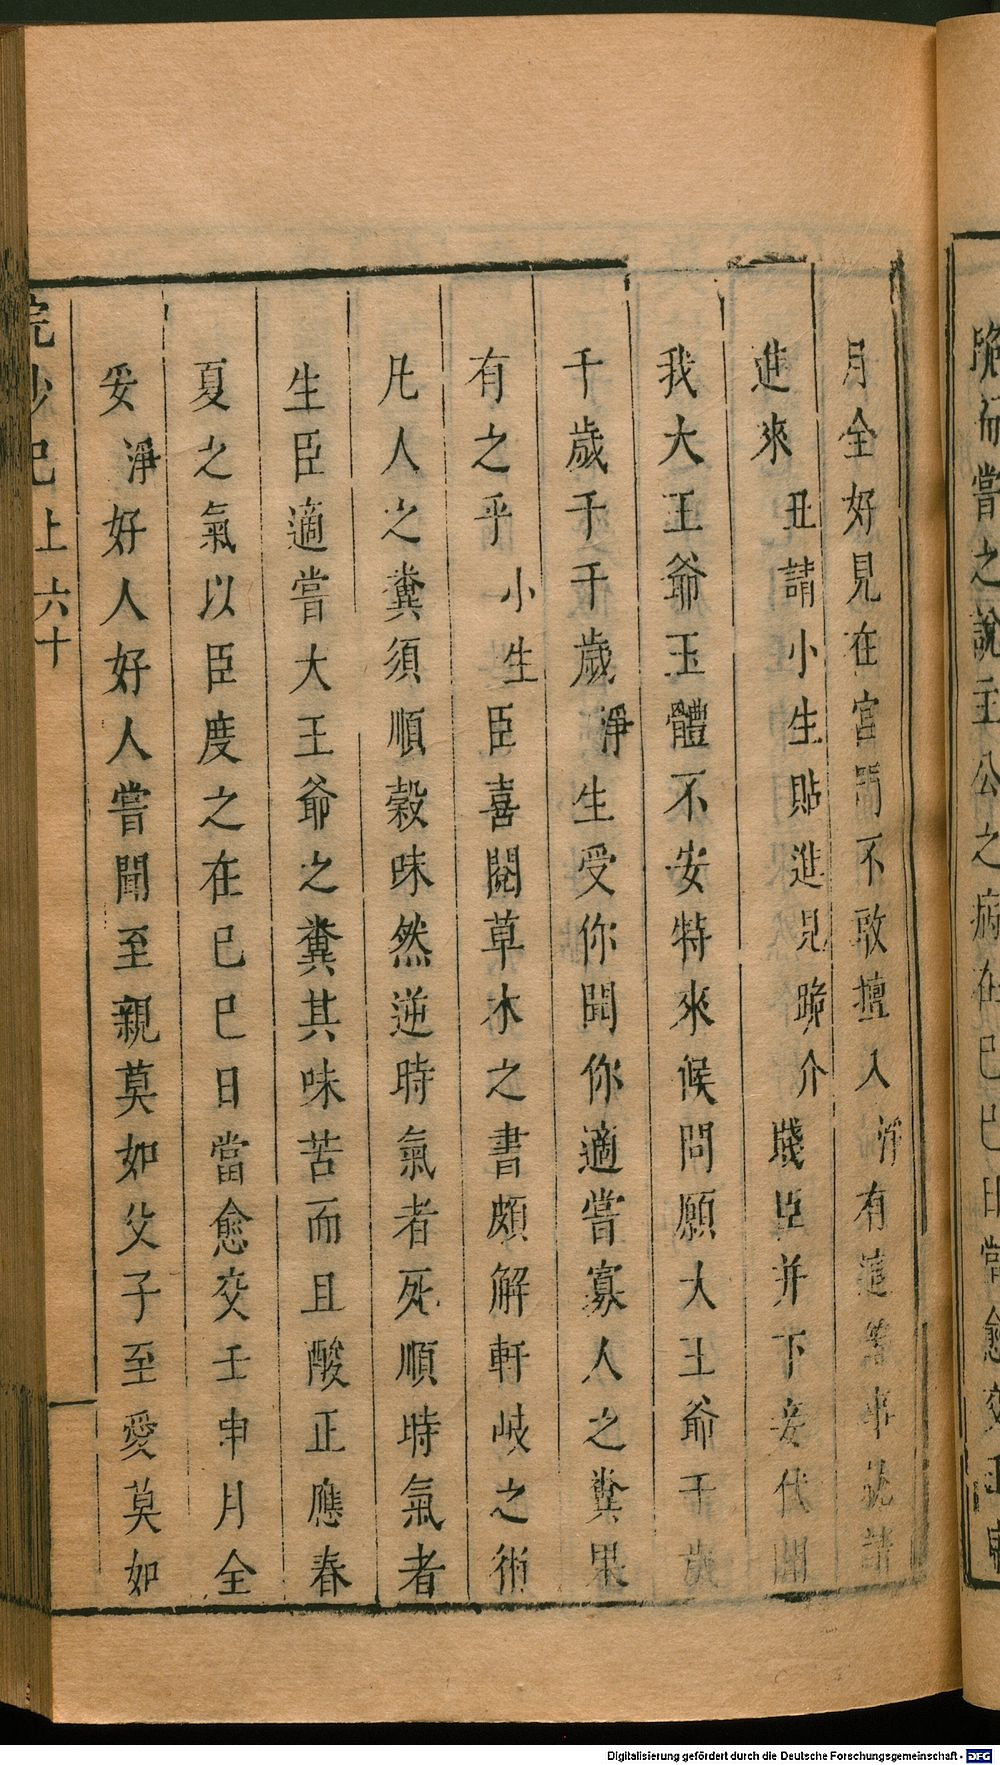 晚而嘗之說主公之病在巳巳日當愈交壬申
月全好見在宮門不敢擅入淨有這等事說請
進來丑請小生貼進見跪介賤臣并下妾代聞
我大王爺玉體不安特來候問願大王爺千歲
千歲千千歲淨生受你聞你適嘗寡人之糞果
有之乎小生臣喜閱草木之書頗解軒岐之術
凡人之糞須順穀味然逆時氣者死順時氣者
生臣適嘗大王爺之糞其味苦而且酸正應春
夏之氣以臣度之在巳巳日當愈交壬申月全
妥淨好人好人嘗聞至親莫如父子至愛莫如
浣紗記上六十
Digitalisierung gefördert durch die Deutsche Forschungsgemeinschaft - DFG